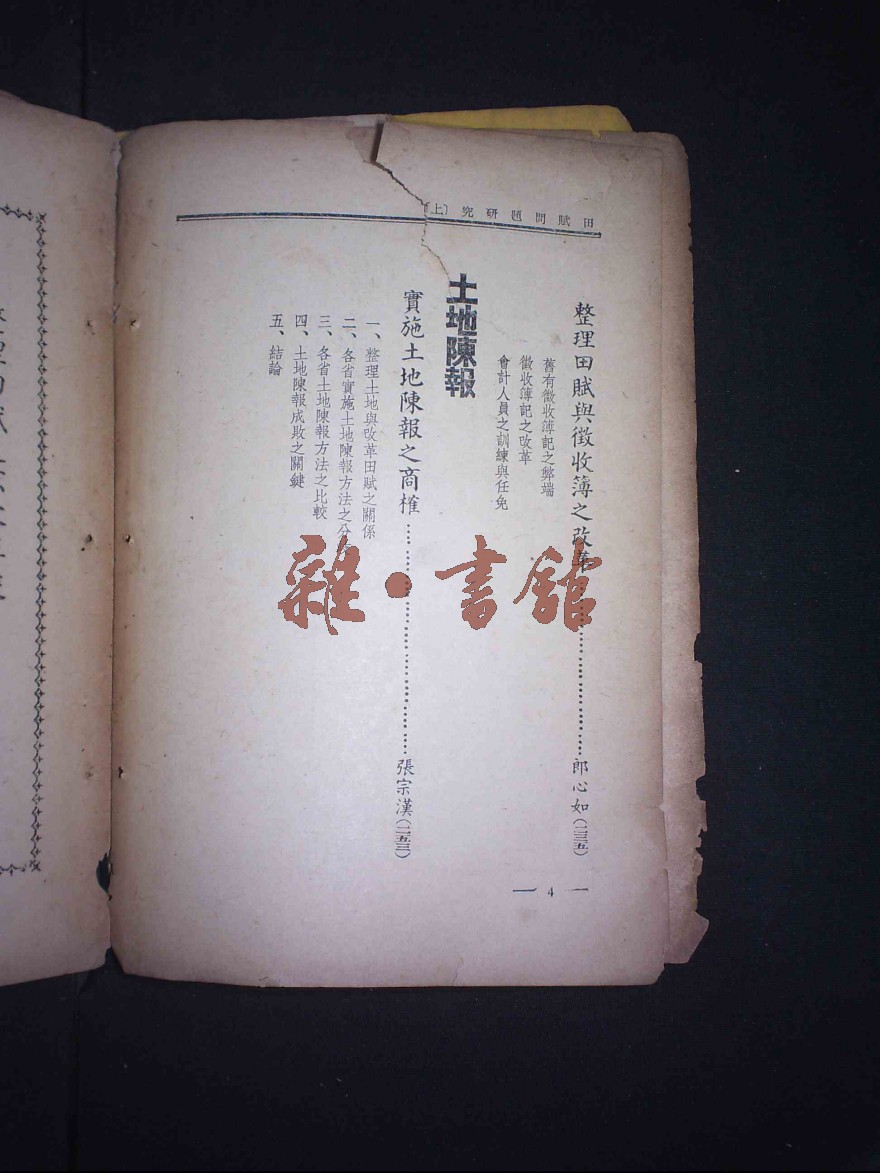 田賦問題研究〔上〕
整理田賦與徵收簿之改革……………………郎心如(二三五)
舊有徵收簿記之弊端
徵收簿記之改革
會計人員之訓練與任免
土地陳報
實施土地陳報之商榷……………………張宗漢(二五三)
一、整理土地與改革田賦之關係
二、各省實施土地陳報方法之分
三、各省土地陳報方法之比較
四、土地陳報成敗之關鍵
五、結論
— 4 —
雜·書館